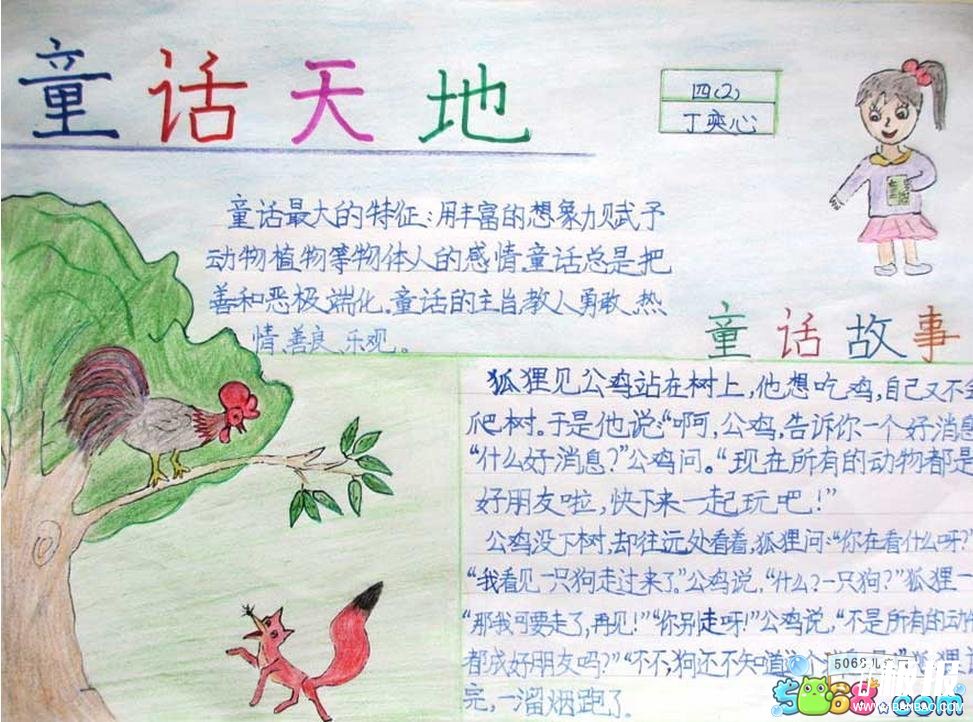 童话天地
四(2)
丁奕心
童话最大的特征:用丰富的想象力赋予
动物植物等物体人的感情.童话总是把
善和恶极端化.童话的主旨,教人勇敢、热
情、善良、乐观。
童话故事
狐狸见公鸡站在树上,他想吃鸡,自己又不
爬树。于是他说:“啊,公鸡,告诉你一个好消息
“什么好消息?”公鸡问。“现在所有的动物都是
好朋友啦,快下来一起玩吧!”
公鸡没下树,却往远处看着,狐狸问:“你在看什么呀?”
“我看见一只狗走过来了。”公鸡说,“什么?一只狗?”狐狸一
“那我可要走了,再见!”“你别走呀!”公鸡说,“不是所有的动
都成好朋友吗?”“不,不,狗还不知道 狐狸
完,一溜烟跑了.
5068儿
5068.com
WWW.BANBAO.COM